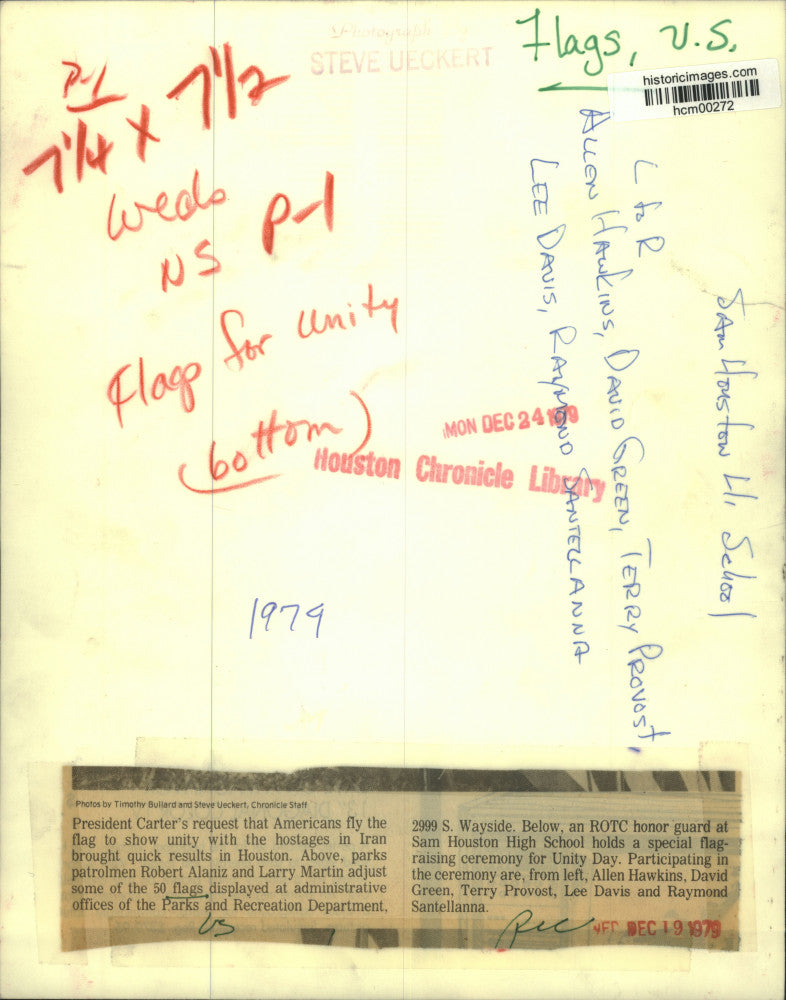 Photograph
STEVE UECKERT
Flags, U.S.
historicimages.com
hcm00272
P-1
7 1/4 x 7 1/2
Weds
NS P-1
Flags for Unity
(bottom)
L to R
ALLEN HAWKINS, DAVID GREEN, TERRY PROVOST,
LEE DAVIS, RAYMOND SANTELLANNA
SAM HOUSTON H. School
MON DEC 24 1979
Houston Chronicle Library
1979
Photos by Timothy Bullard and Steve Ueckert, Chronicle Staff
President Carter's request that Americans fly the
flag to show unity with the hostages in Iran
brought quick results in Houston. Above, parks
patrolmen Robert Alaniz and Larry Martin adjust
some of the 50 flags displayed at administrative
offices of the Parks and Recreation Department,
2999 S. Wayside. Below, an ROTC honor guard at
Sam Houston High School holds a special flag-
raising ceremony for Unity Day. Participating in
the ceremony are, from left, Allen Hawkins, David
Green, Terry Provost, Lee Davis and Raymond
Santellanna.
US
Rec
DEC 19 1979